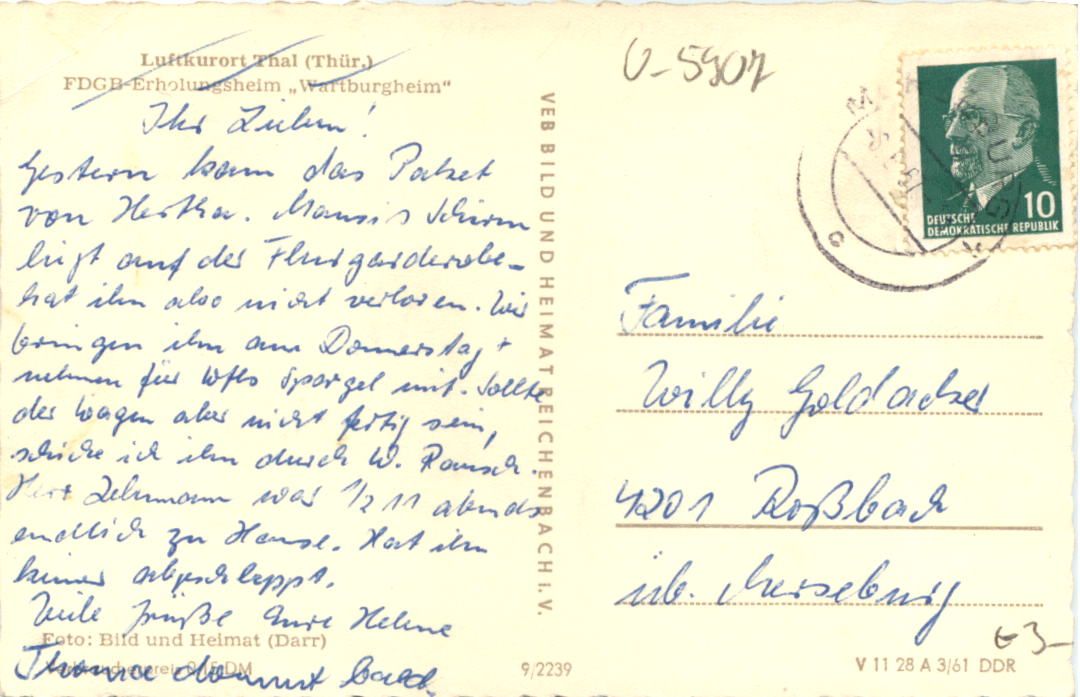 Luftkurort Thal (Thür.)
FDGB-Erholungsheim „Wartburgheim“
Ihr Lieben!
Gestern kam das Paket
von Hertha. Mausis Schirm
liegt auf der Flurgarderobe –
hat ihn also nicht verloren. Wir
bringen ihn am Donnerstag +
nehmen für Spargel mit. Sollte
der Wagen aber nicht fertig sein,
schicke ich ihn durch W. Rausch.
Herr Lehmann war 1/2 11 abends
endlich zu Hause. Hat ihn
keiner abgeschleppt.
Viele Grüße Eure Helene
Foto: Bild und Heimat (Darr)
kommt bald.
VEB BILD UND HEIMAT REICHENBACH i. V.
9/2239
V-5907
DEUTSCHE
DEMOKRATISCHE REPUBLIK
10
Familie
Willy Goldacker
4201 Roßbach
üb. Merseburg
€3-
V 11 28 A 3/61 DDR